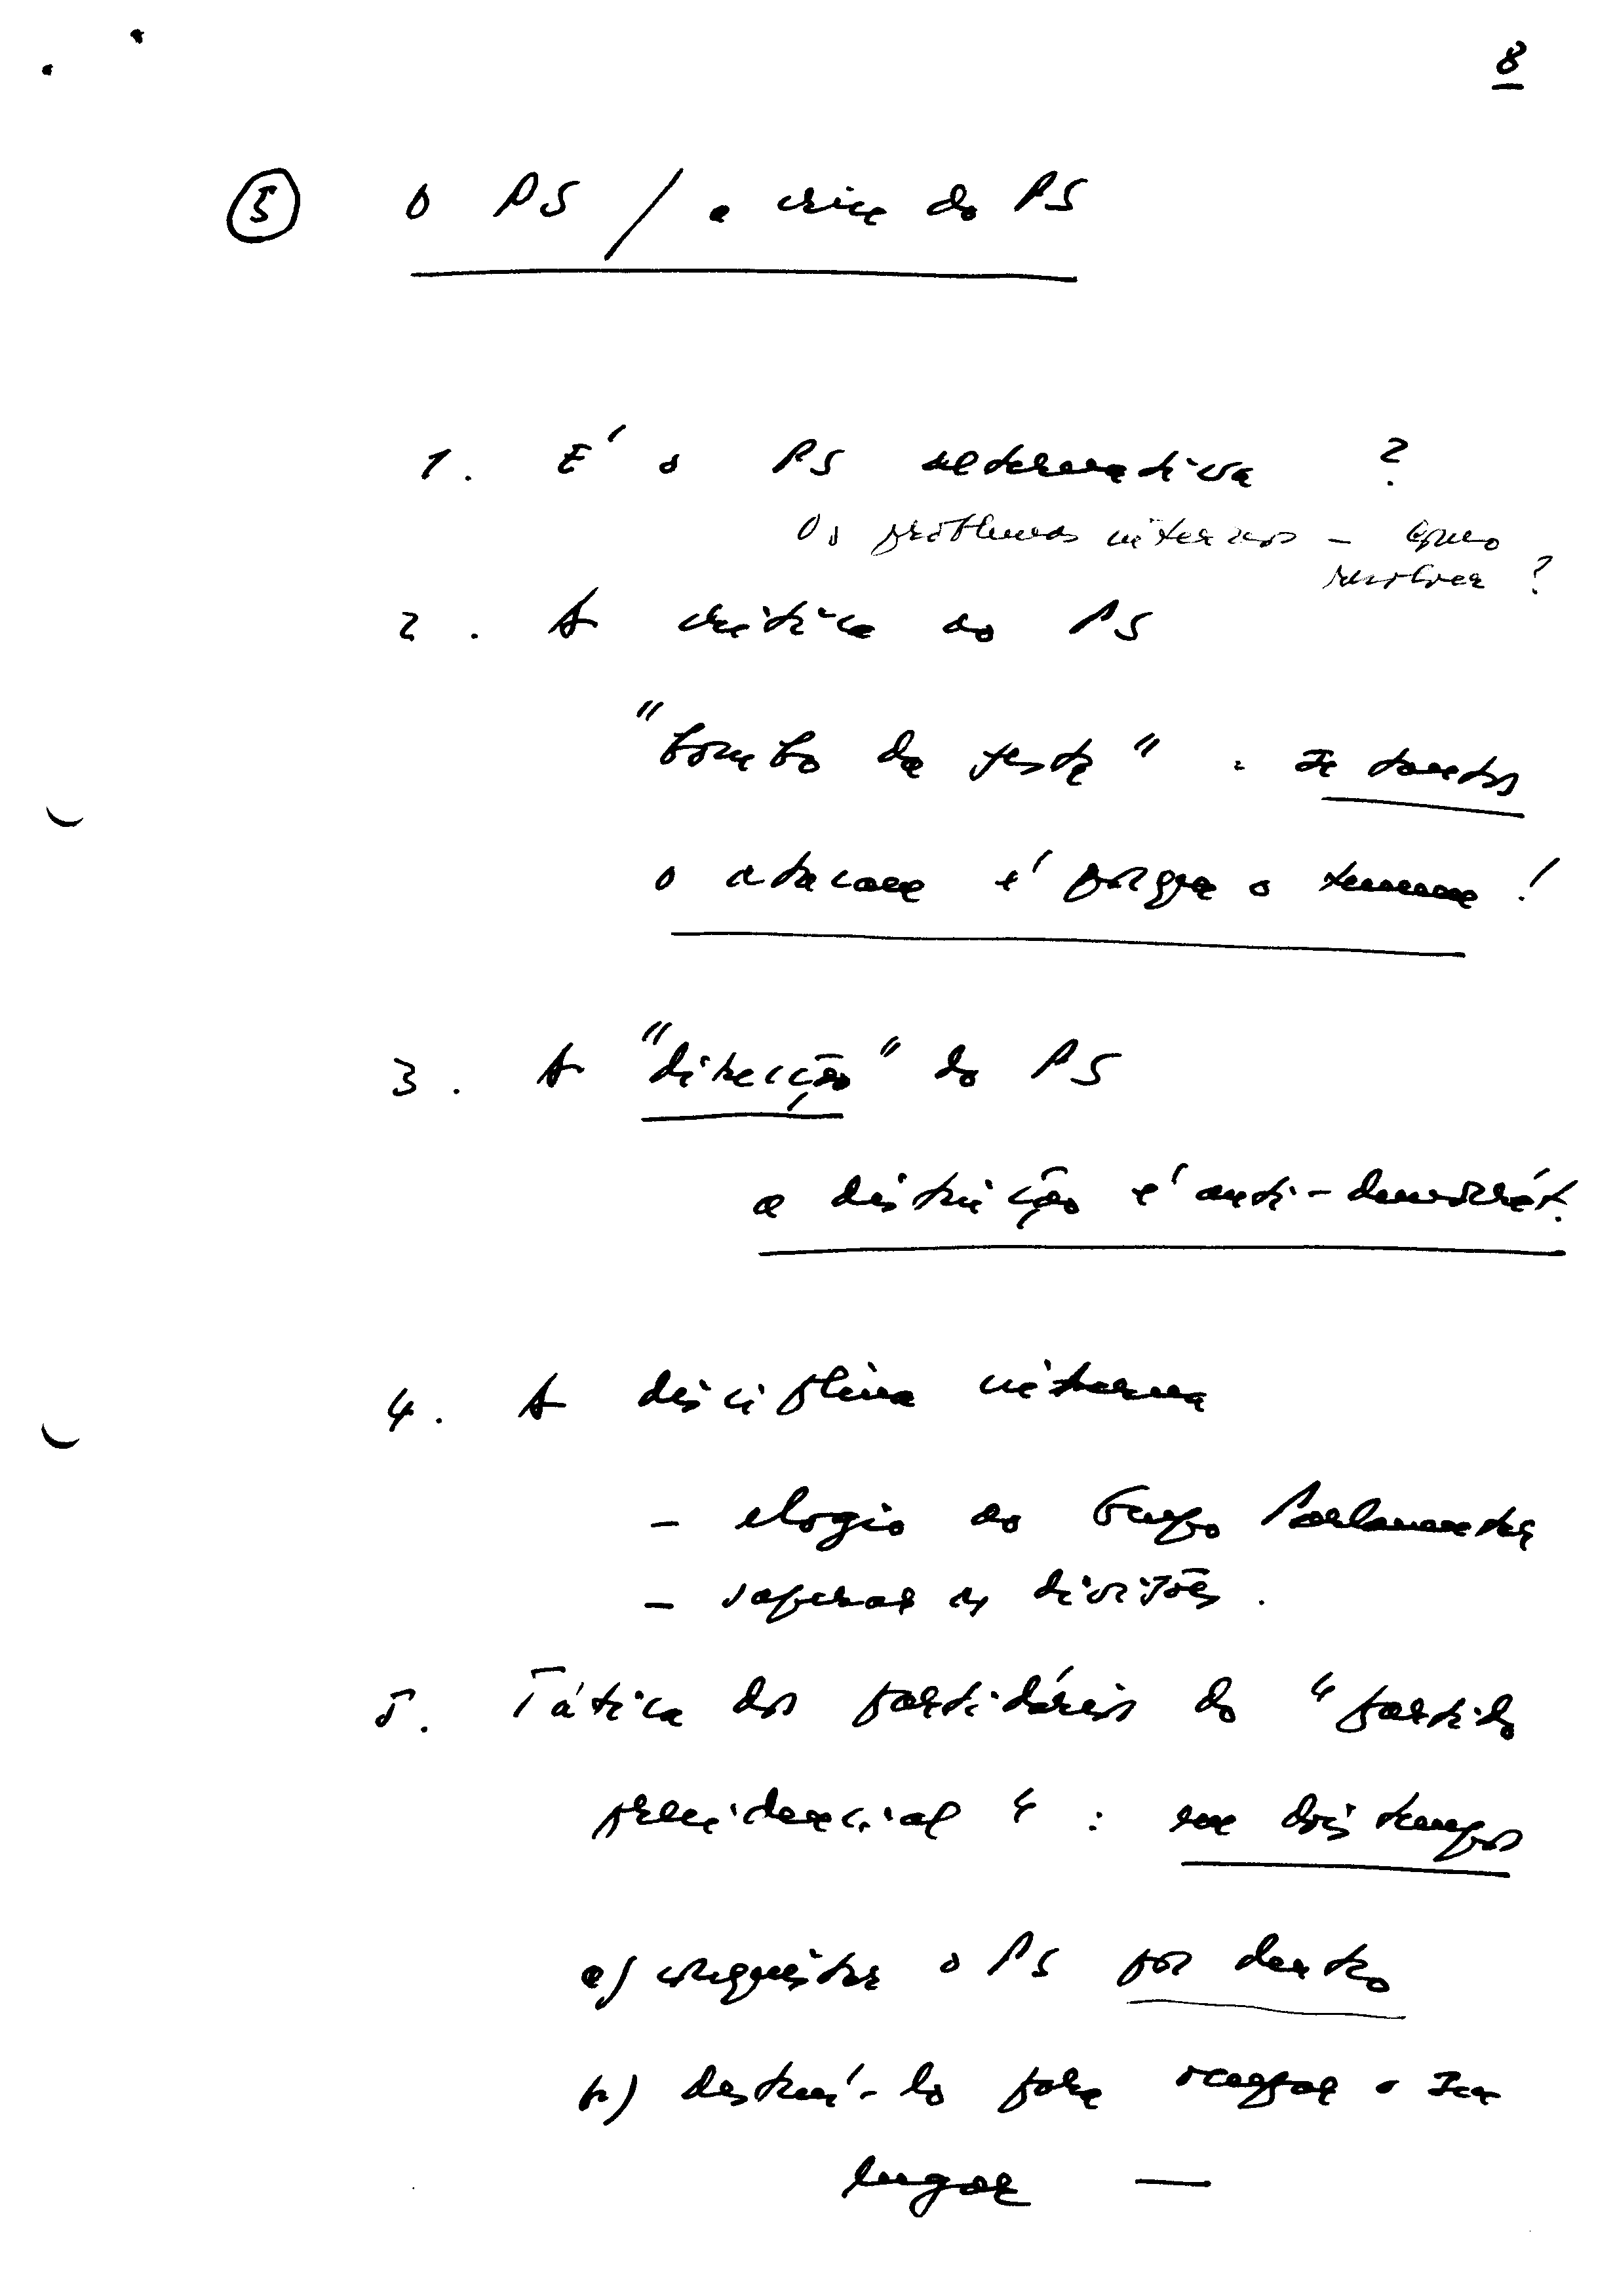 8
⑤ O PS / a crise do PS
1. É o PS alternativa ?
Os problemas internos – como
resolver ?
2. A crítica ao PS
"bombo da festa" : se tantos
o atacam é porque o temem !
3. A "direcção" do PS
a distinção é anti-democrát.
4. A disciplina interna
– elogio ao Grupo Parlamentar
– superar as divisões.
5. Tática dos partidários do "partido
presidencial" : em dois tempos
a) conquistar o PS por dentro
b) destruí-lo para ocupar o seu
lugar —